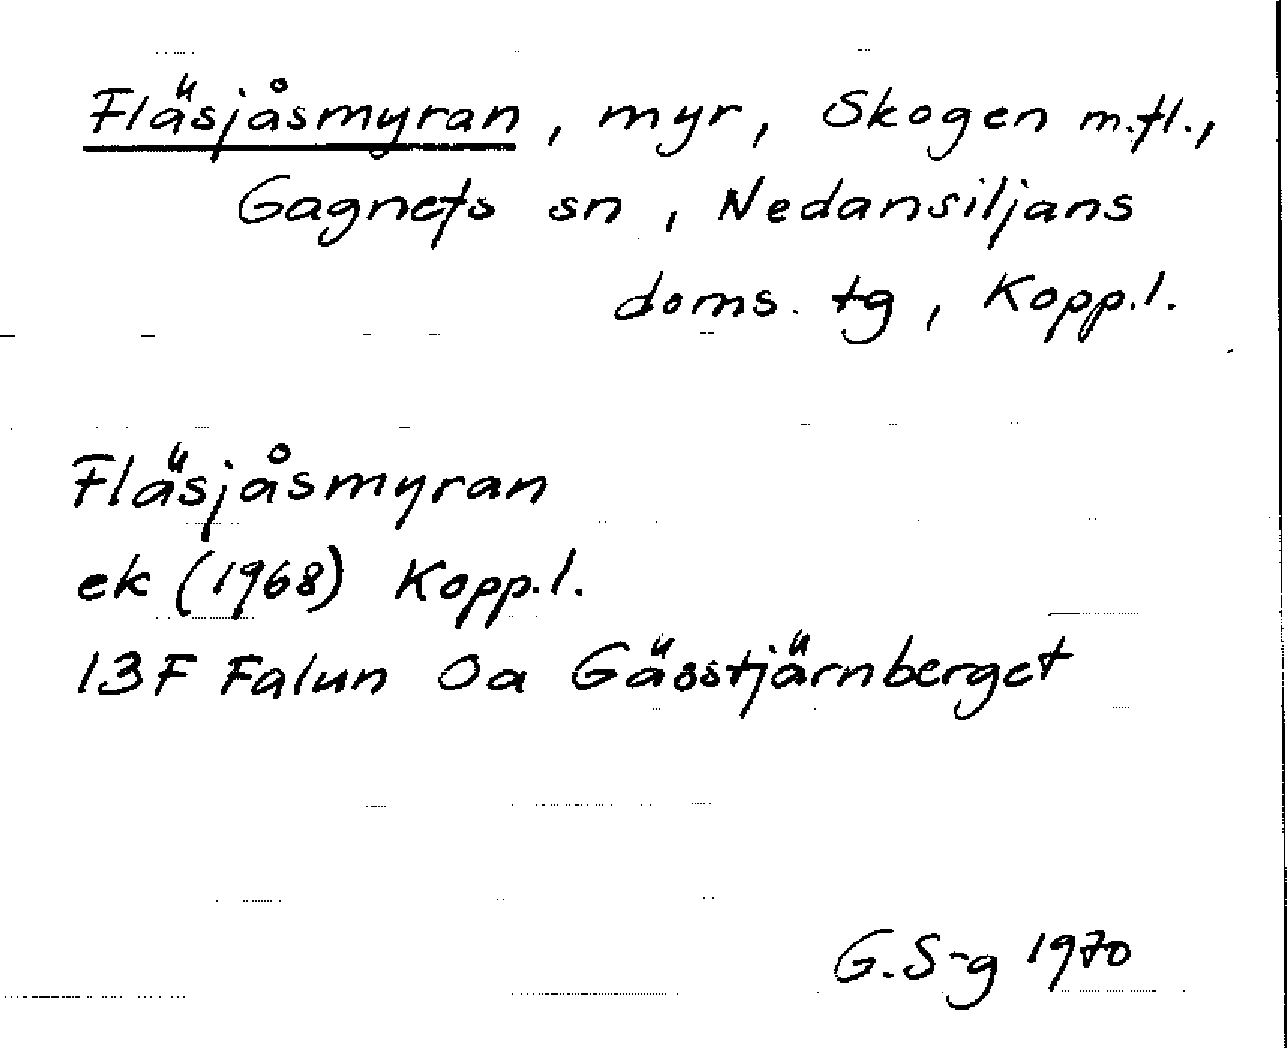 Fläsjåsmyran, myr, Skogen m.fl.,
Gagnefs sn, Nedansiljans
doms. tg, Kopp.l.
Fläsjåsmyran
ek (1968) Kopp.l.
13F Falun 0a Gässtjärnberget
G.S-g 1970